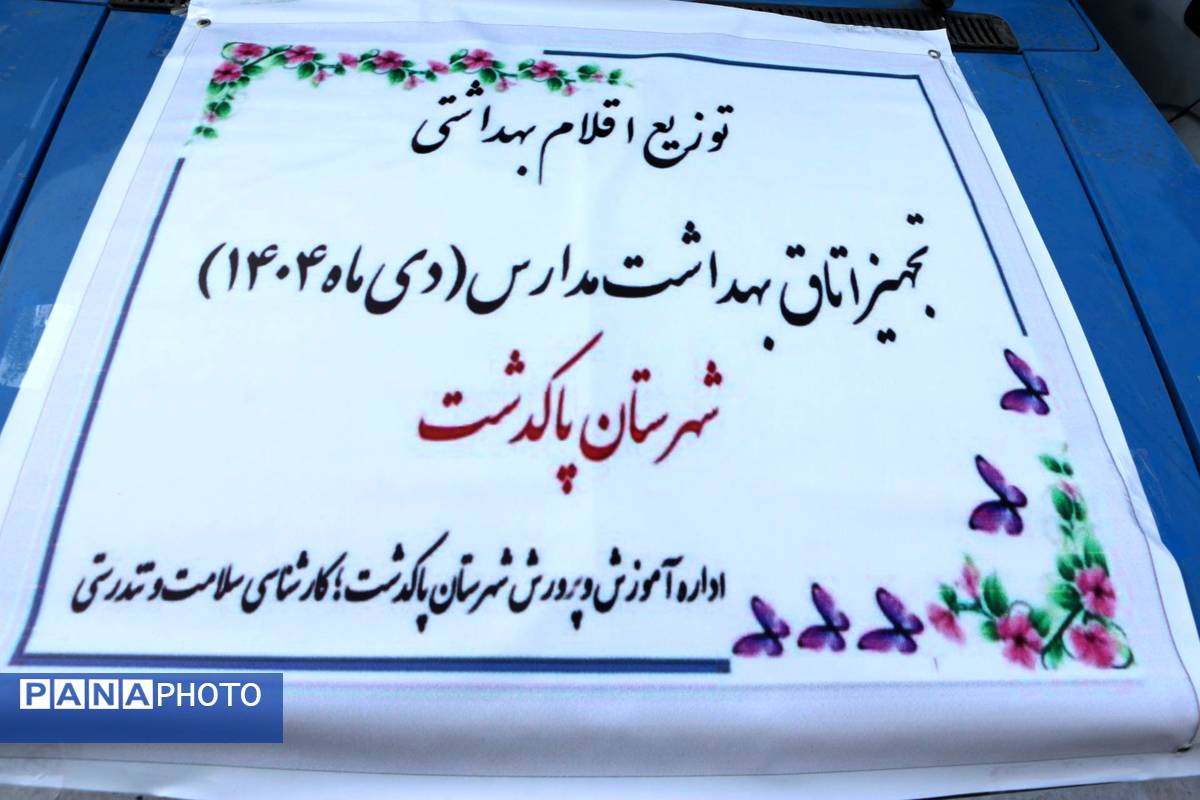 توزیع اقلام بهداشتی
تجهیز اتاق بهداشت مدارس (دی ماه ۱۴۰۴)
شهرستان پاکدشت
اداره آموزش و پرورش شهرستان پاکدشت؛ کارشناسی سلامت و تندرستی
PANAPHOTO